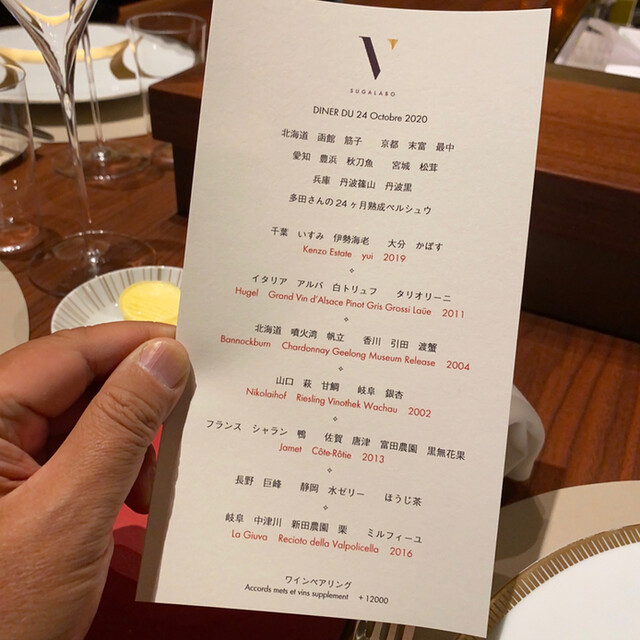 V
SUGALABO
DINER DU 24 Octobre 2020
北海道 函館 筋子 京都 末富 最中
愛知 豊浜 秋刀魚 宮城 松茸
兵庫 丹波篠山 丹波黒
多田さんの24ヶ月熟成ペルシュウ
千葉 いすみ 伊勢海老 大分 かぼす
Kenzo Estate yui 2019
イタリア アルバ 白トリュフ タリオリーニ
Hugel Grand Vin d'Alsace Pinot Gris Grossi Laüe 2011
北海道 噴火湾 帆立 香川 引田 渡蟹
Bannockburn Chardonnay Geelong Museum Release 2004
山口 萩 甘鯛 岐阜 銀杏
Nikolaihof Riesling Vinothek Wachau 2002
フランス シャラン 鴨 佐賀 唐津 富田農園 黒無花果
Jamet Côte-Rôtie 2013
長野 巨峰 静岡 水ゼリー ほうじ茶
岐阜 中津川 新田農園 栗 ミルフィーユ
La Giuva Recioto della Valpolicella 2016
ワインペアリング
Accords mets et vins supplement +12000